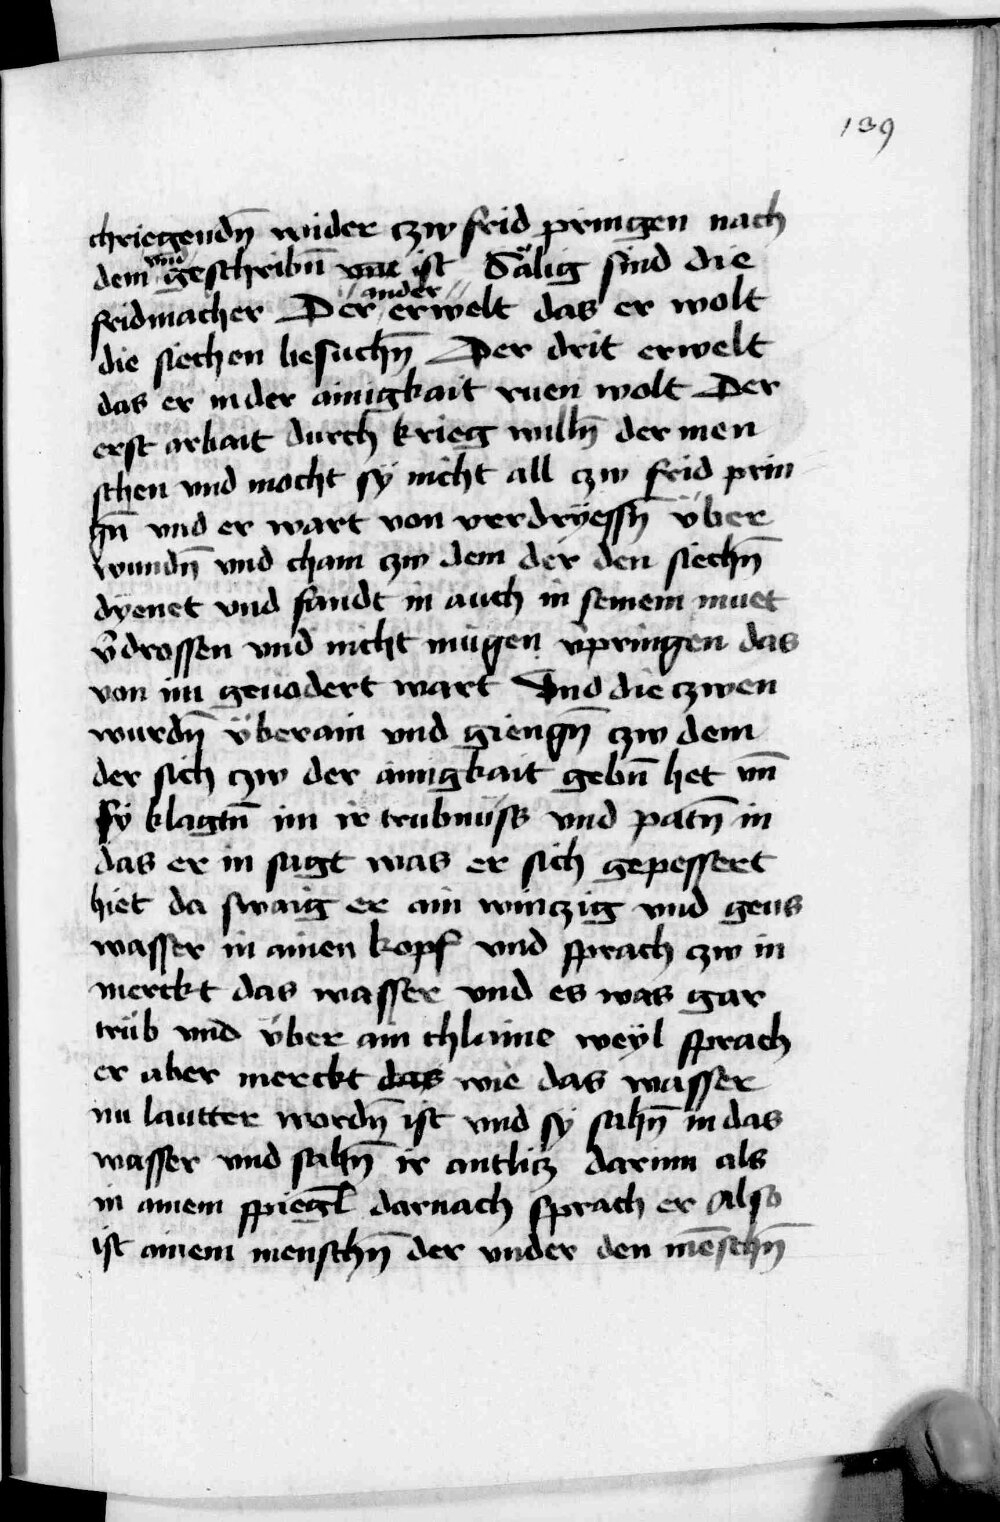 139
chriegendn̄ wider czw frid pringen nach
dem und geschribn̄ ist Sälig sind die
fridmacher Der ander erwelt das er wolt
die siechen besuchn̄ Der drit erwelt
das er in der ainigkait ruen wolt Der
erst arbait durch krieg willn̄ der men
schen vnd mocht sy nicht all czw frid prin
gn̄ vnd er wart von verdryessn̄ vber
wundn̄ vnd cham czw dem der den siechn̄
dyenet vnd fandt in auch in seinem muet
v̄drossen vnd nicht mügen v̄pringen das
von im geuodert wart Vnd die czwen
wurdn̄ v̈berain vnd giengn̄ czw dem
der sich czw der ainigkait gebn̄ het vn̄
sy klagtn̄ im ir trubnüss vnd patn̄ in
das er in sagt was er sich gepessert
hiet da swaig er ain winczig vnd geus
wasser in ainen kopf vnd sprach czw in
merckt das wasser vnd es was gar
trüb vnd v̈ber ain chlaine weyl sprach
er aber merckt das wie das wasser
nu lautter wordn̄ ist vnd sy sahn̄ in das
wasser vnd sahn̄ ir antlitz darinn als
in ainem spiegl darnach sprach er Also
ist ainem menschn̄ der vnder den mēschn̄